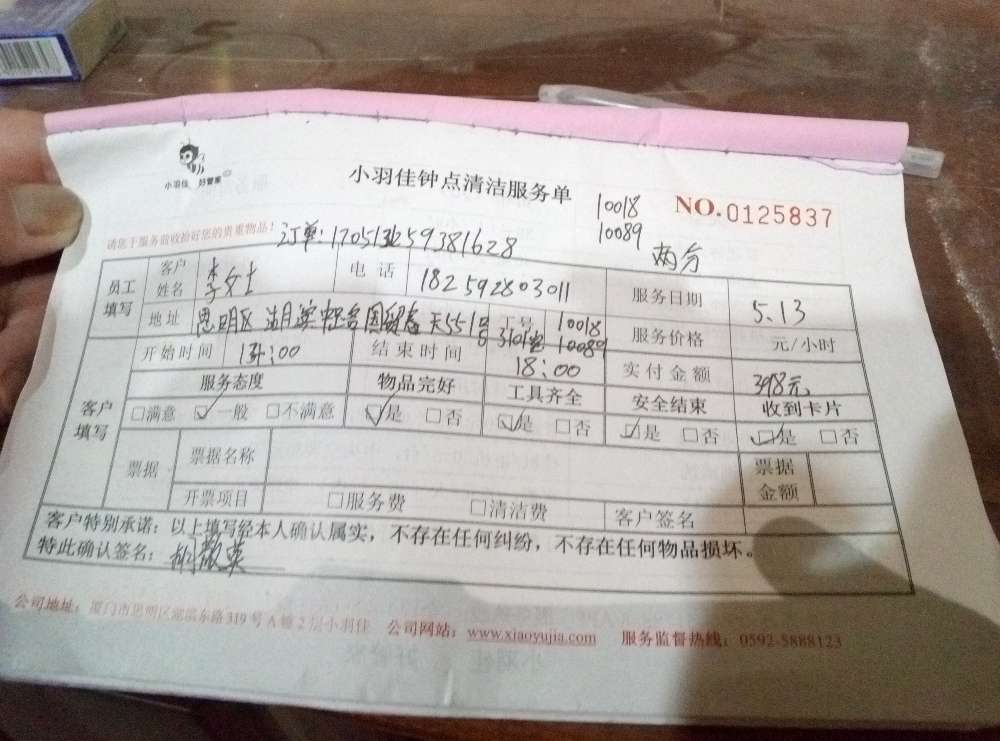 小羽佳 好管家
小羽佳钟点清洁服务单
10018
10089
NO.0125837
请您于服务前收拾好您的贵重物品!
订单:
两分
员工填写 客户姓名 李女士 电话 18259280301 服务日期 5.13
地址 思明区 国贸春天551号 工号 10018 10089 服务价格 元/小时
开始时间 14:00 结束时间 18:00 实付金额 398元
客户填写 服务态度 物品完好 工具齐全 安全结束 收到卡片
□满意 ☑一般 □不满意 ☑是 □否 ☑是 □否 ☑是 □否 ☑是 □否
票据 票据名称 票据金额
开票项目 □服务费 □清洁费 客户签名
客户特别承诺:以上填写经本人确认属实,不存在任何纠纷,不存在任何物品损坏。
特此确认签名:
公司地址:厦门市思明区湖滨东路319号A幢2层小羽佳 公司网站:www.xiaoyujia.com 服务监督热线:0592-5888123